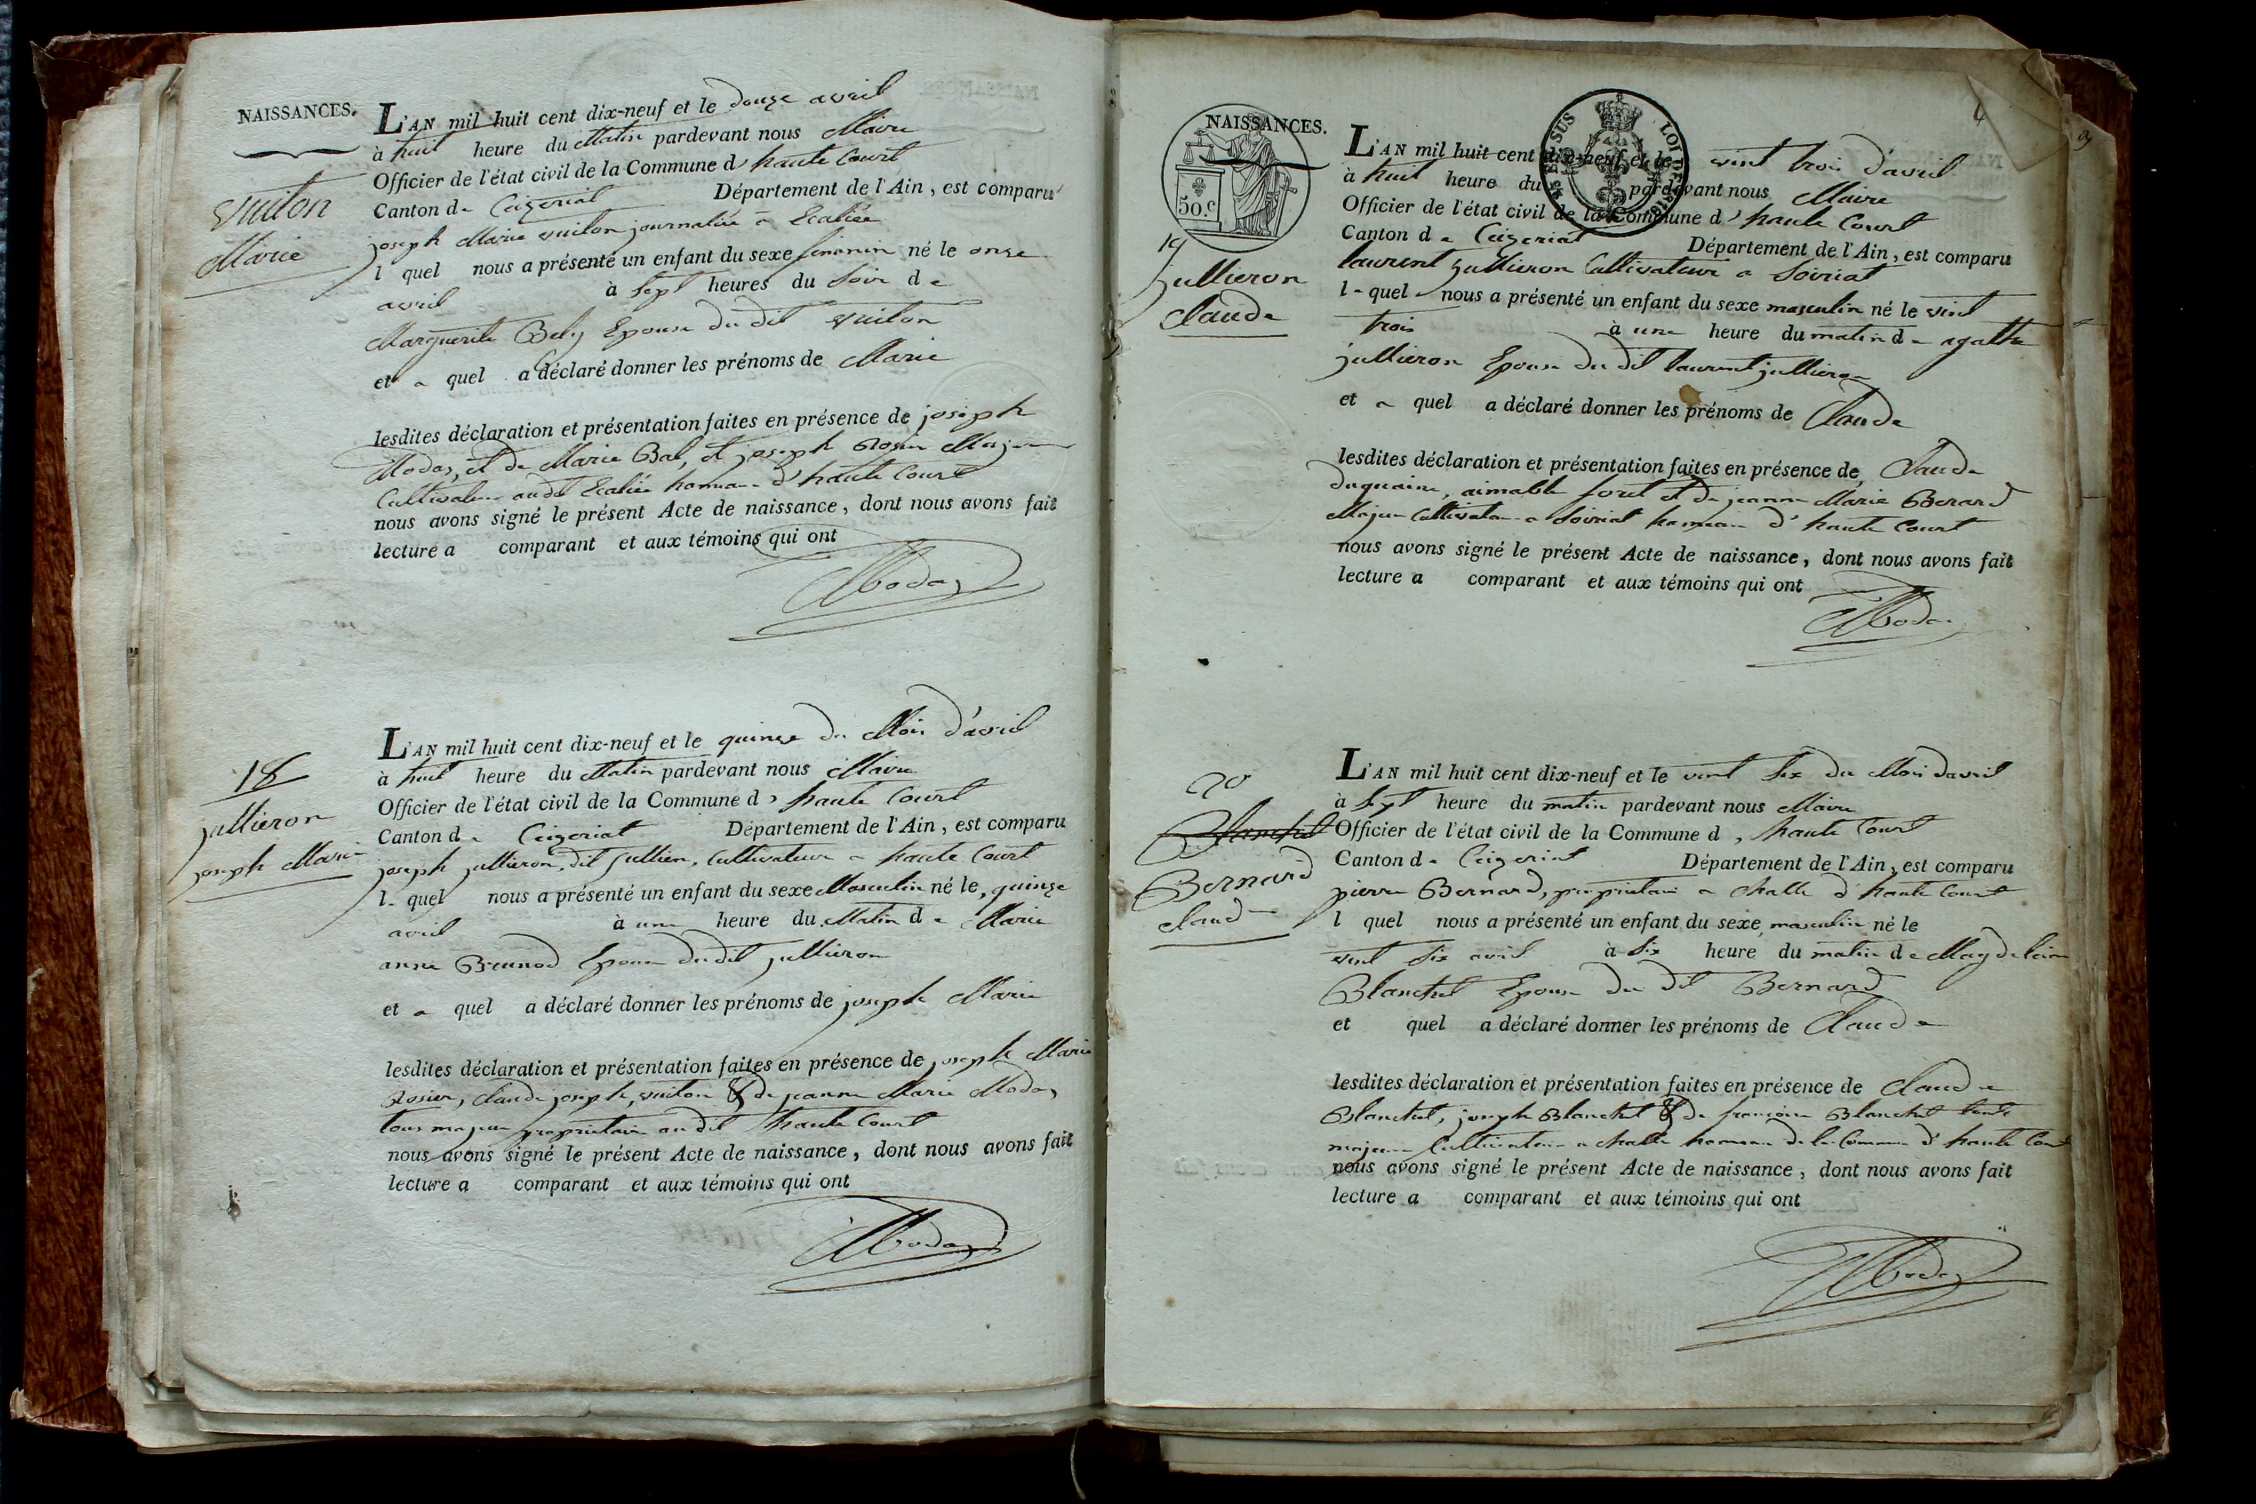 NAISSANCES.
vuiton
Marie
L'AN mil huit cent dix-neuf et le douze avril
à huit heure du Matin pardevant nous Maire
Officier de l'état civil de la Commune d' haute Court
Canton de Ceizeriat Département de l'Ain, est comparu
joseph Marie vuiton journalier a
l quel nous a présenté un enfant du sexe feminin né le onze
avril à sept heures du Soir de
Marguerite Bely Epouse du dit vuiton
et a quel a déclaré donner les prénoms de Marie
lesdites déclaration et présentation faites en présence de joseph
Modas, et de Marie Bal, et joseph Rosier Majeur
Cultivateur audit hameau d'haute Court
nous avons signé le présent Acte de naissance, dont nous avons fait
lecture a comparant et aux témoins qui ont
Modas
18
jullieron
joseph Marie
L'AN mil huit cent dix-neuf et le quinze du Mois d'avril
à huit heure du Matin pardevant nous Maire
Officier de l'état civil de la Commune d' haute Court
Canton de Ceizeriat Département de l'Ain, est comparu
joseph jullieron, dit jullien, Cultivateur a haute Court
le quel nous a présenté un enfant du sexe Masculin né le quinze
avril à une heure du Matin de Marie
anne Brunod Epouse dudit jullieron
et a quel a déclaré donner les prénoms de joseph Marie
lesdites déclaration et présentation faites en présence de joseph Marie
Rosier, Claude joseph vuiton & de jeanne Marie Modas
tous majeur propriétaire au dit haute Court
nous avons signé le présent Acte de naissance, dont nous avons fait
lecture a comparant et aux témoins qui ont
Modas
NAISSANCES.
50.c
EN SUS
LOI DE 1816
19
jullieron
Claude
L'AN mil huit cent dix-neuf et le vint trois d'avril
à huit heure du pardevant nous Maire
Officier de l'état civil de la Commune d' haute Court
Canton de Ceizeriat Département de l'Ain, est comparu
laurent jullieron Cultivateur a Soiriat
le quel nous a présenté un enfant du sexe masculin né le vint
trois à une heure du matin de agathe
jullieron Epouse du dit laurent jullieron
et a quel a déclaré donner les prénoms de Claude
lesdites déclaration et présentation faites en présence de Claude
duquaire, aimable foret et de jeanne Marie Berard
Majeur Cultivateur a Soiriat hameau d'haute Court
nous avons signé le présent Acte de naissance, dont nous avons fait
lecture a comparant et aux témoins qui ont
Modas
20
Blanchet
Bernard
Claude
L'AN mil huit cent dix-neuf et le vint six du Mois d'avril
à sept heure du matin pardevant nous Maire
Officier de l'état civil de la Commune d' haute Court
Canton de Ceizeriat Département de l'Ain, est comparu
pierre Bernard, propriétaire a Challe d'haute Court
l quel nous a présenté un enfant du sexe masculin né le
vint six avril à six heure du matin de Magdelaine
Blanchet Epouse du dit Bernard
et quel a déclaré donner les prénoms de Claude
lesdites déclaration et présentation faites en présence de Claude
Blanchet, joseph Blanchet & de françoise Blanchet
majeur Cultivateur a Challe hameau de la Commune d'haute Court
nous avons signé le présent Acte de naissance, dont nous avons fait
lecture a comparant et aux témoins qui ont
Modas